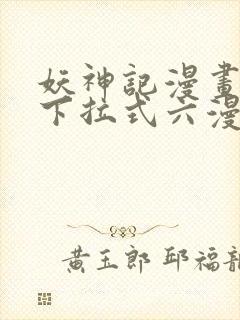 妖神記漫畫
下拉式六漫
黃玉郎 邱福龍